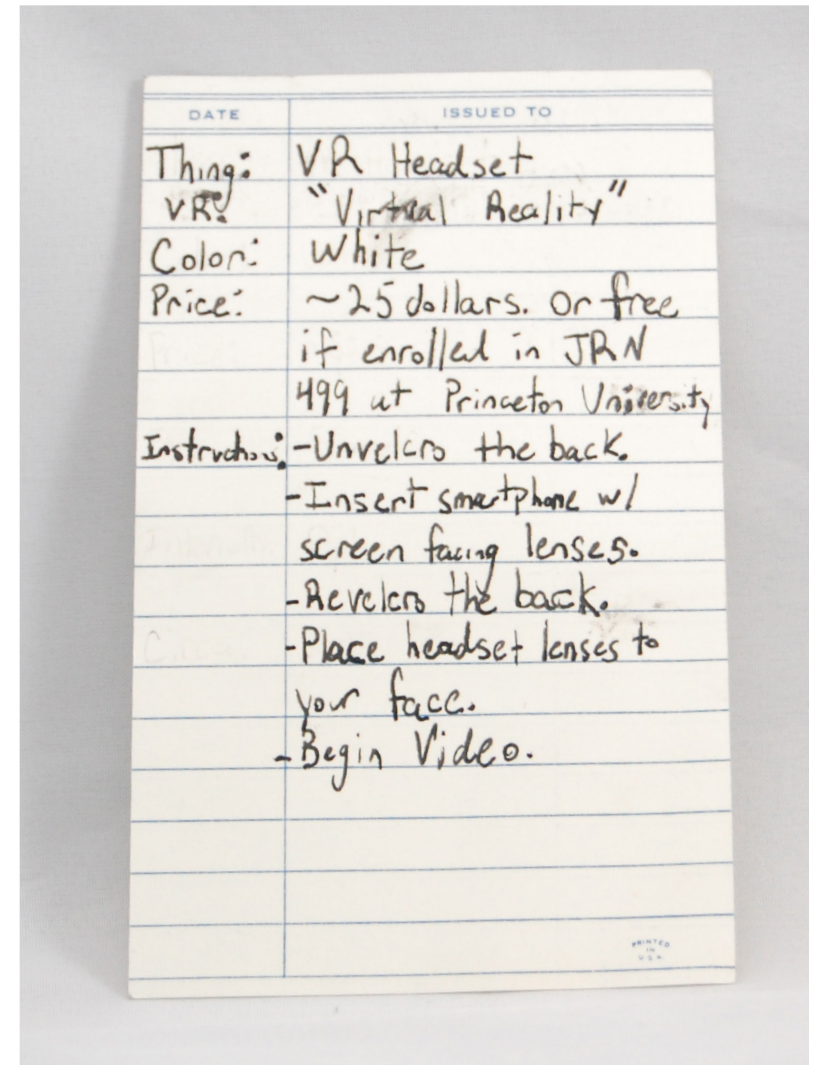 DATE ISSUED TO
Thing: VR Headset
VR: "Virtual Reality"
Color: White
Price: ~25 dollars. Or free
if enrolled in JRN
499 at Princeton University
Instruction: -Unvelcro the back.
-Insert smartphone w/
screen facing lenses.
-Revelcro the back.
-Place headset lenses to
your face.
-Begin Video.
PRINTED
IN
USA